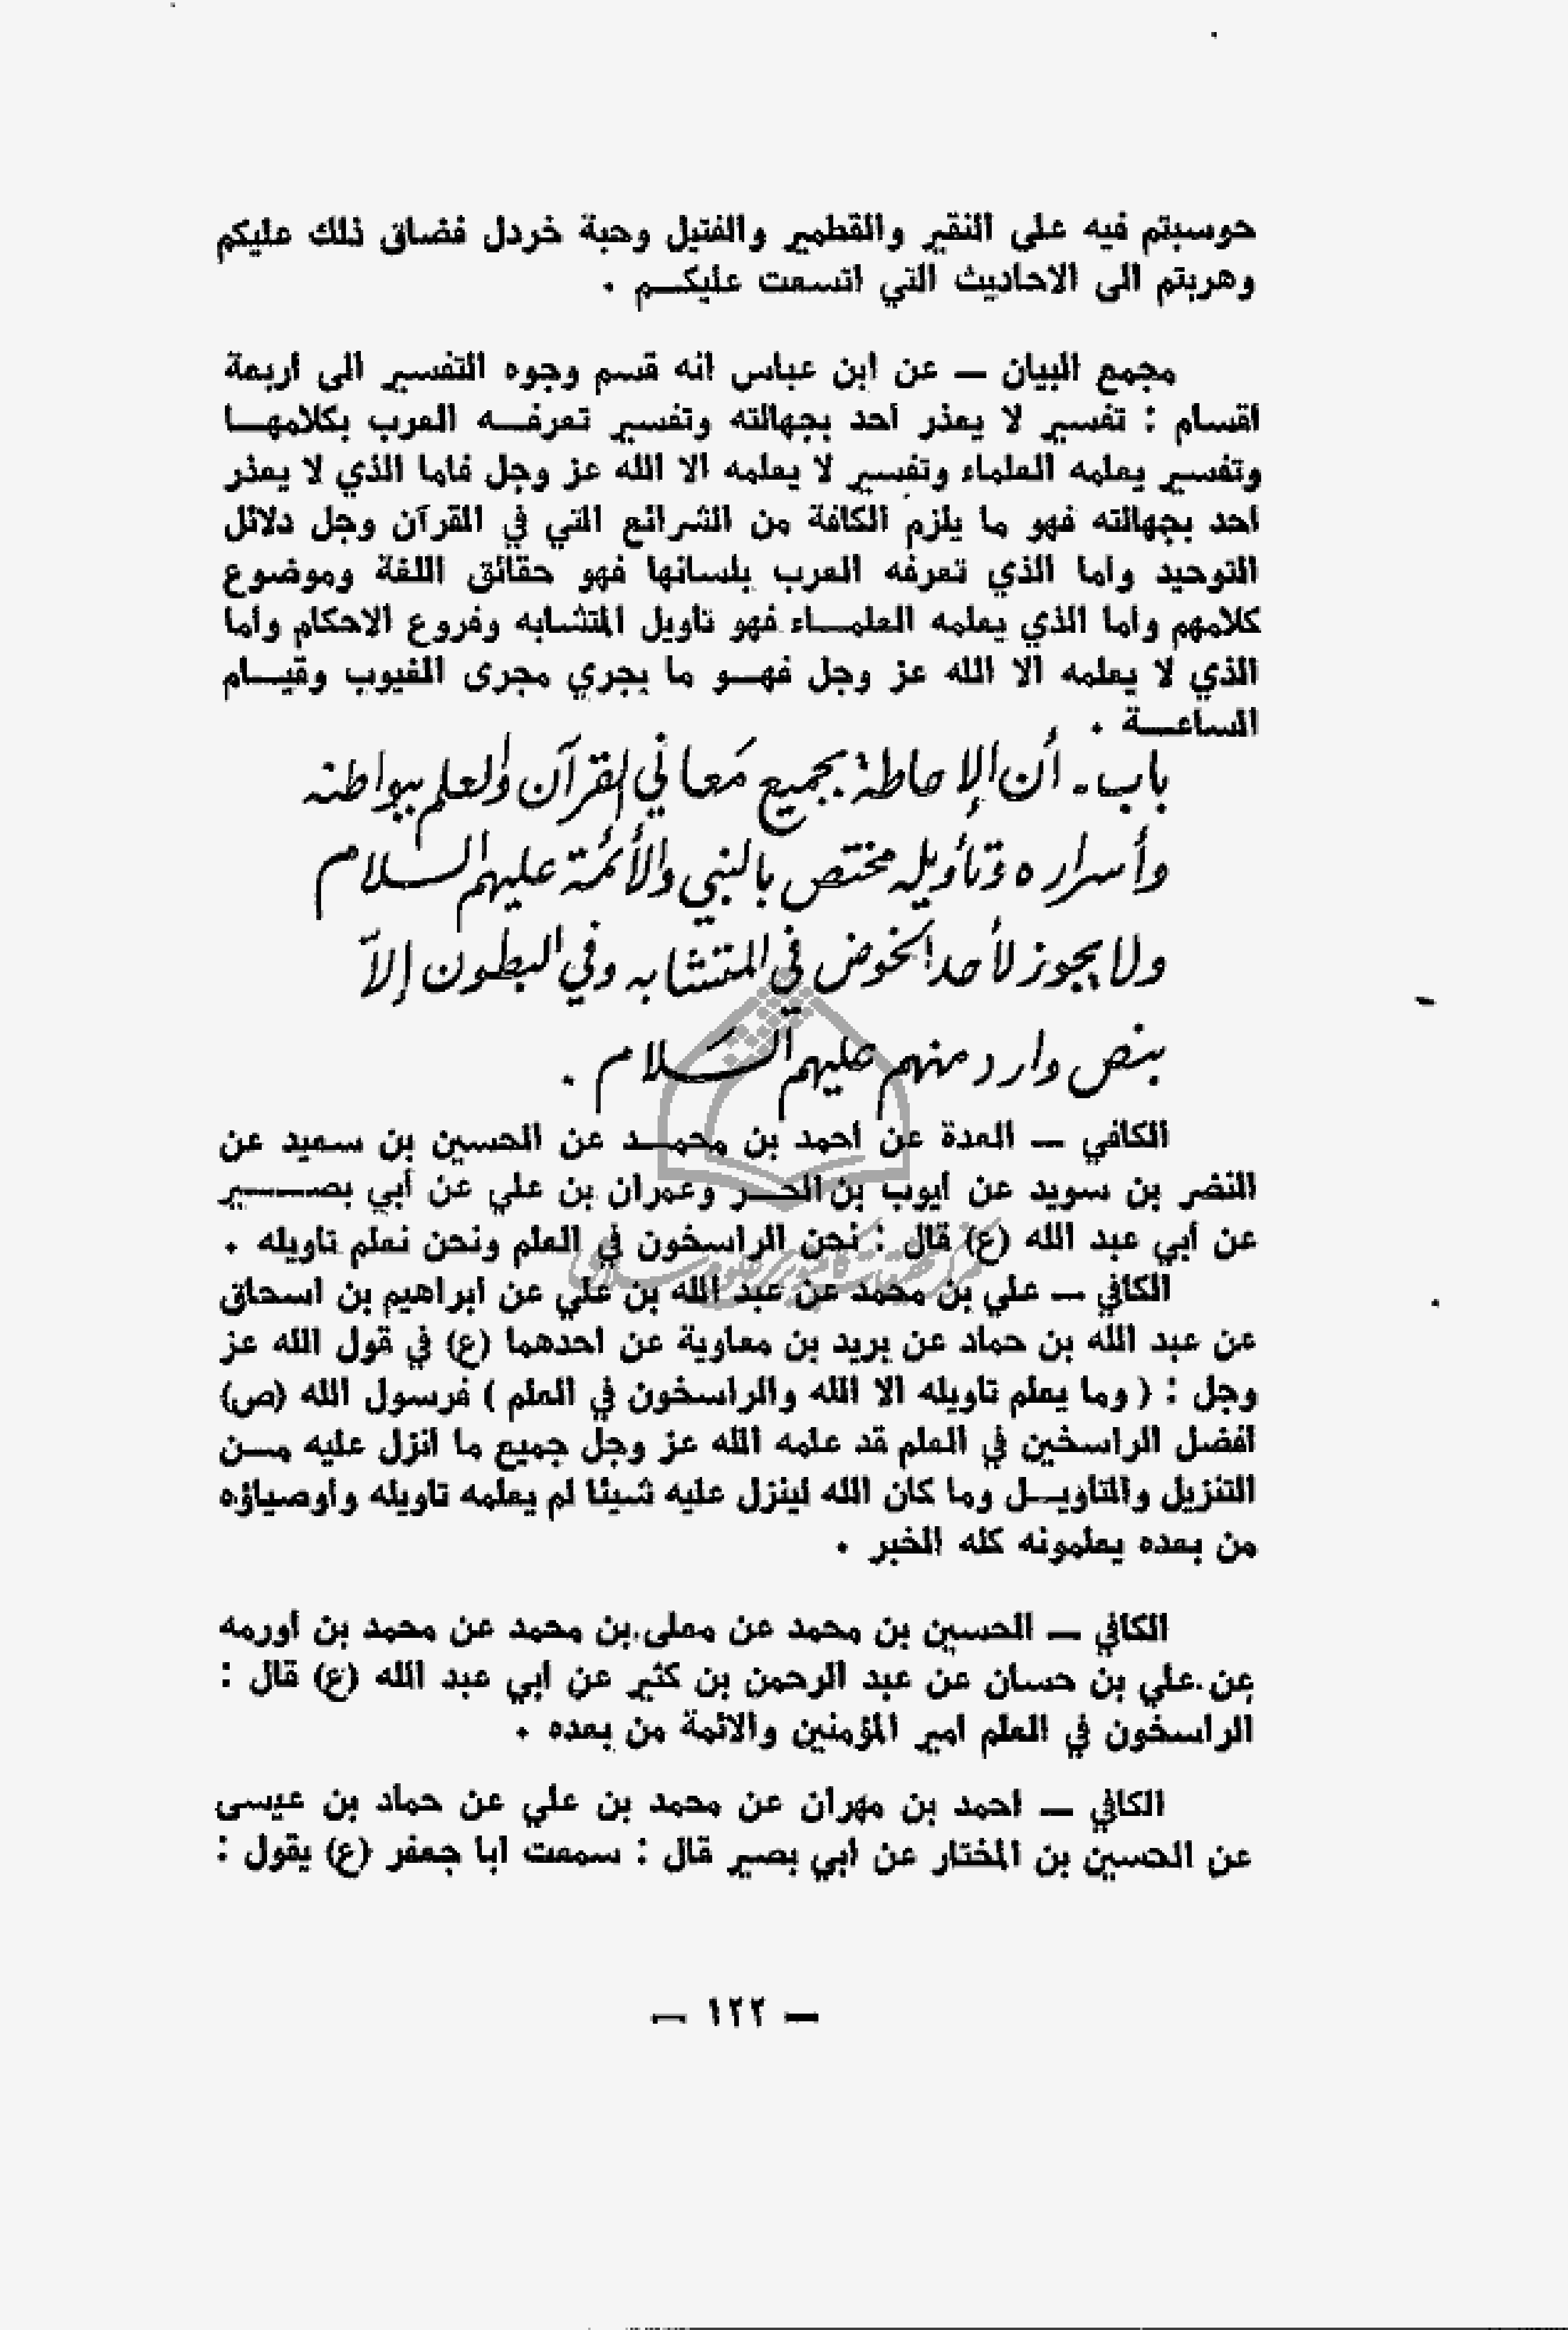 حوسبتم فيه على النقير والقطمير والفتيل وحبة خردل فضاق ذلك عليكم
وهربتم الى الاحاديث التي اتسعت عليكم .
مجمع البيان – عن ابن عباس انه قسم وجوه التفسير الى اربعة
اقسام : تفسير لا يعذر احد بجهالته وتفسير تعرفه العرب بكلامها
وتفسير يعلمه العلماء وتفسير لا يعلمه الا الله عز وجل فاما الذي لا يعذر
احد بجهالته فهو ما يلزم الكافة من الشرائع التي في القرآن وجل دلائل
التوحيد واما الذي تعرفه العرب بلسانها فهو حقائق اللغة وموضوع
كلامهم واما الذي يعلمه العلماء فهو تاويل المتشابه وفروع الاحكام واما
الذي لا يعلمه الا الله عز وجل فهو ما يجري مجرى الغيوب وقيام
الساعة .
باب - أن الإحاطة بجميع معاني القرآن والعلم ببواطنه
وأسراره وتأويله مختص بالنبي والأئمة عليهم السلام
ولا يجوز لأحد الخوض في المتشابه وفي البطون إلاّ
بنص وارد منهم عليهم السلام .
الكافي – العدة عن احمد بن محمد عن الحسين بن سعيد عن
النضر بن سويد عن ايوب بن الحر وعمران بن علي عن أبي بصير
عن ابي عبد الله (ع) قال : نحن الراسخون في العلم ونحن نعلم تاويله .
الكافي – علي بن محمد عن عبد الله بن علي عن ابراهيم بن اسحاق
عن عبد الله بن حماد عن بريد بن معاوية عن احدهما (ع) في قول الله عز
وجل : ( وما يعلم تاويله الا الله والراسخون في العلم ) فرسول الله (ص)
افضل الراسخين في العلم قد علمه الله عز وجل جميع ما انزل عليه من
التنزيل والتاويل وما كان الله لينزل عليه شيئا لم يعلمه تاويله واوصياؤه
من بعده يعلمونه كله الخبر .
الكافي – الحسين بن محمد عن معلى بن محمد عن محمد بن اورمه
عن علي بن حسان عن عبد الرحمن بن كثير عن ابي عبد الله (ع) قال :
الراسخون في العلم امير المؤمنين والائمة من بعده .
الكافي – احمد بن مهران عن محمد بن علي عن حماد بن عيسى
عن الحسين بن المختار عن ابي بصير قال : سمعت ابا جعفر (ع) يقول :
– ١٢٢ –